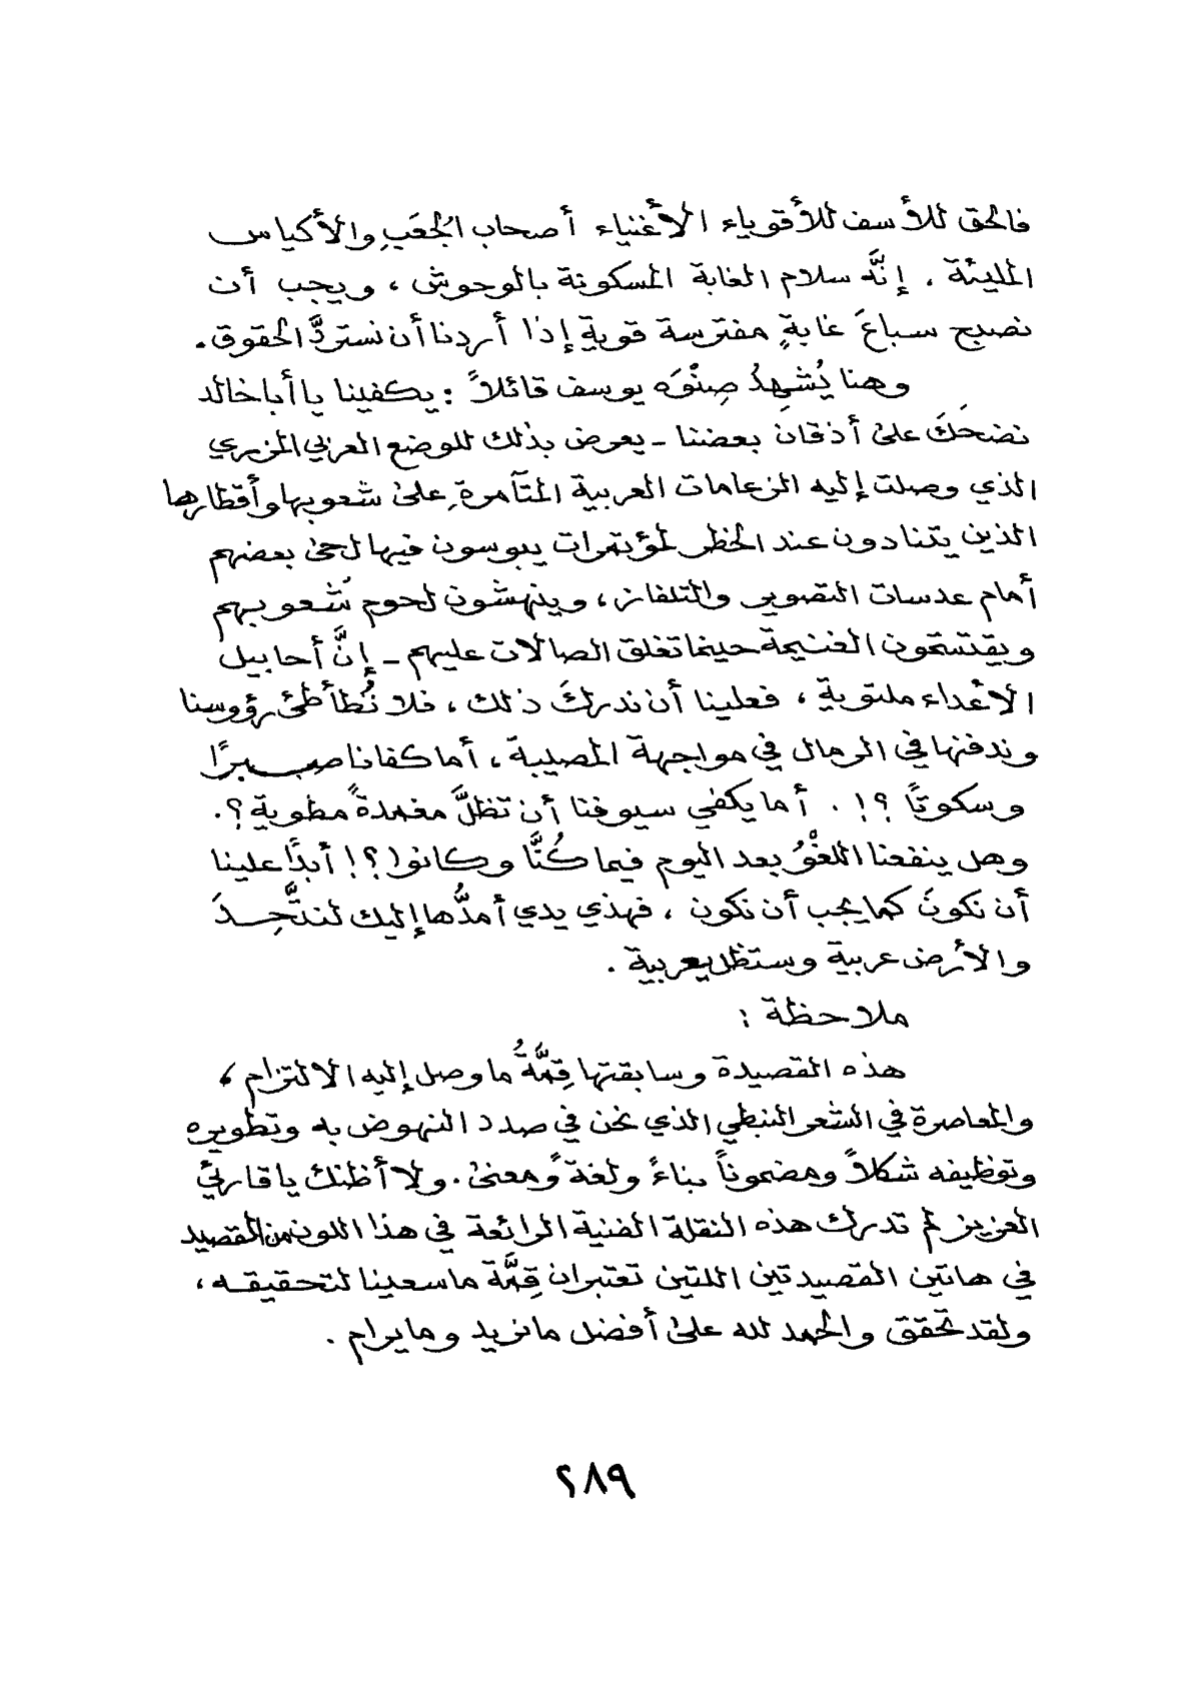 فالحق للأسف للأقوياء الأغنياء أصحاب الجُعَبِ والأكياس
المليئة . إنَّه سلام الغابة المسكونة بالوحوش ، ويجب أن
نصبح سباعَ غابةٍ مفترسة قوية إذا أردنا أن نستردَّ الحقوق .
وهنا يُشهِدُ صِنْوَه يوسف قائلاً : يكفينا يا أبا خالد
نضحَكَ على أذقان بعضنا - يعرض بذلك للوضع العربي المزري
الذي وصلت إليه الزعامات العربية المتآمرةِ على شعوبها وأقطارها
الذين يتنادون عند الخطر لمؤتمرات يبوسون فيها لحى بعضهم
أمام عدسات التصوير والتلفاز ، وينهشون لحوم شُعوبهم
ويقتسمون الغنيمة حينما تغلق الصالات عليهم - إنَّ أحابيل
الأعداء ملتوية ، فعلينا أن ندركَ ذلك ، فلا نُطأطئ رؤوسنا
وندفنها في الرمال في مواجهة المصيبة ، أما كفانا صبرًا
وسكوتاً ؟! . أما يكفي سيوفنا أن تظلَّ مغمدةً مطوية ؟ .
وهل ينفعنا اللغْوُ بعد اليوم فيما كُنَّا وكانوا ؟! أبدًا علينا
أن نكونَ كما يجب أن نكون ، فهذي يدي أمدُّها إليك لنتَّحِدَ
والأرض عربية وستظل يعربية .
ملاحظة :
هذه القصيدة وسابقتها قِمَّةُ ما وصل إليه الالتزام ،
والمعاصرة في الشعر النبطي الذي نحن في صدد النهوض به وتطويره
وتوظيفه شكلاً ومضموناً بناءً ولغةً ومعنى . ولا أظنك يا قارئي
العزيز لم تدرك هذه النقلة الفنية الرائعة في هذا اللون من القصيد
في هاتين القصيدتين اللتين تعتبران قِمَّة ما سعينا لتحقيقه ،
ولقد تحقق والحمد لله على أفضل ما نريد وما يرام .
٢٨٩